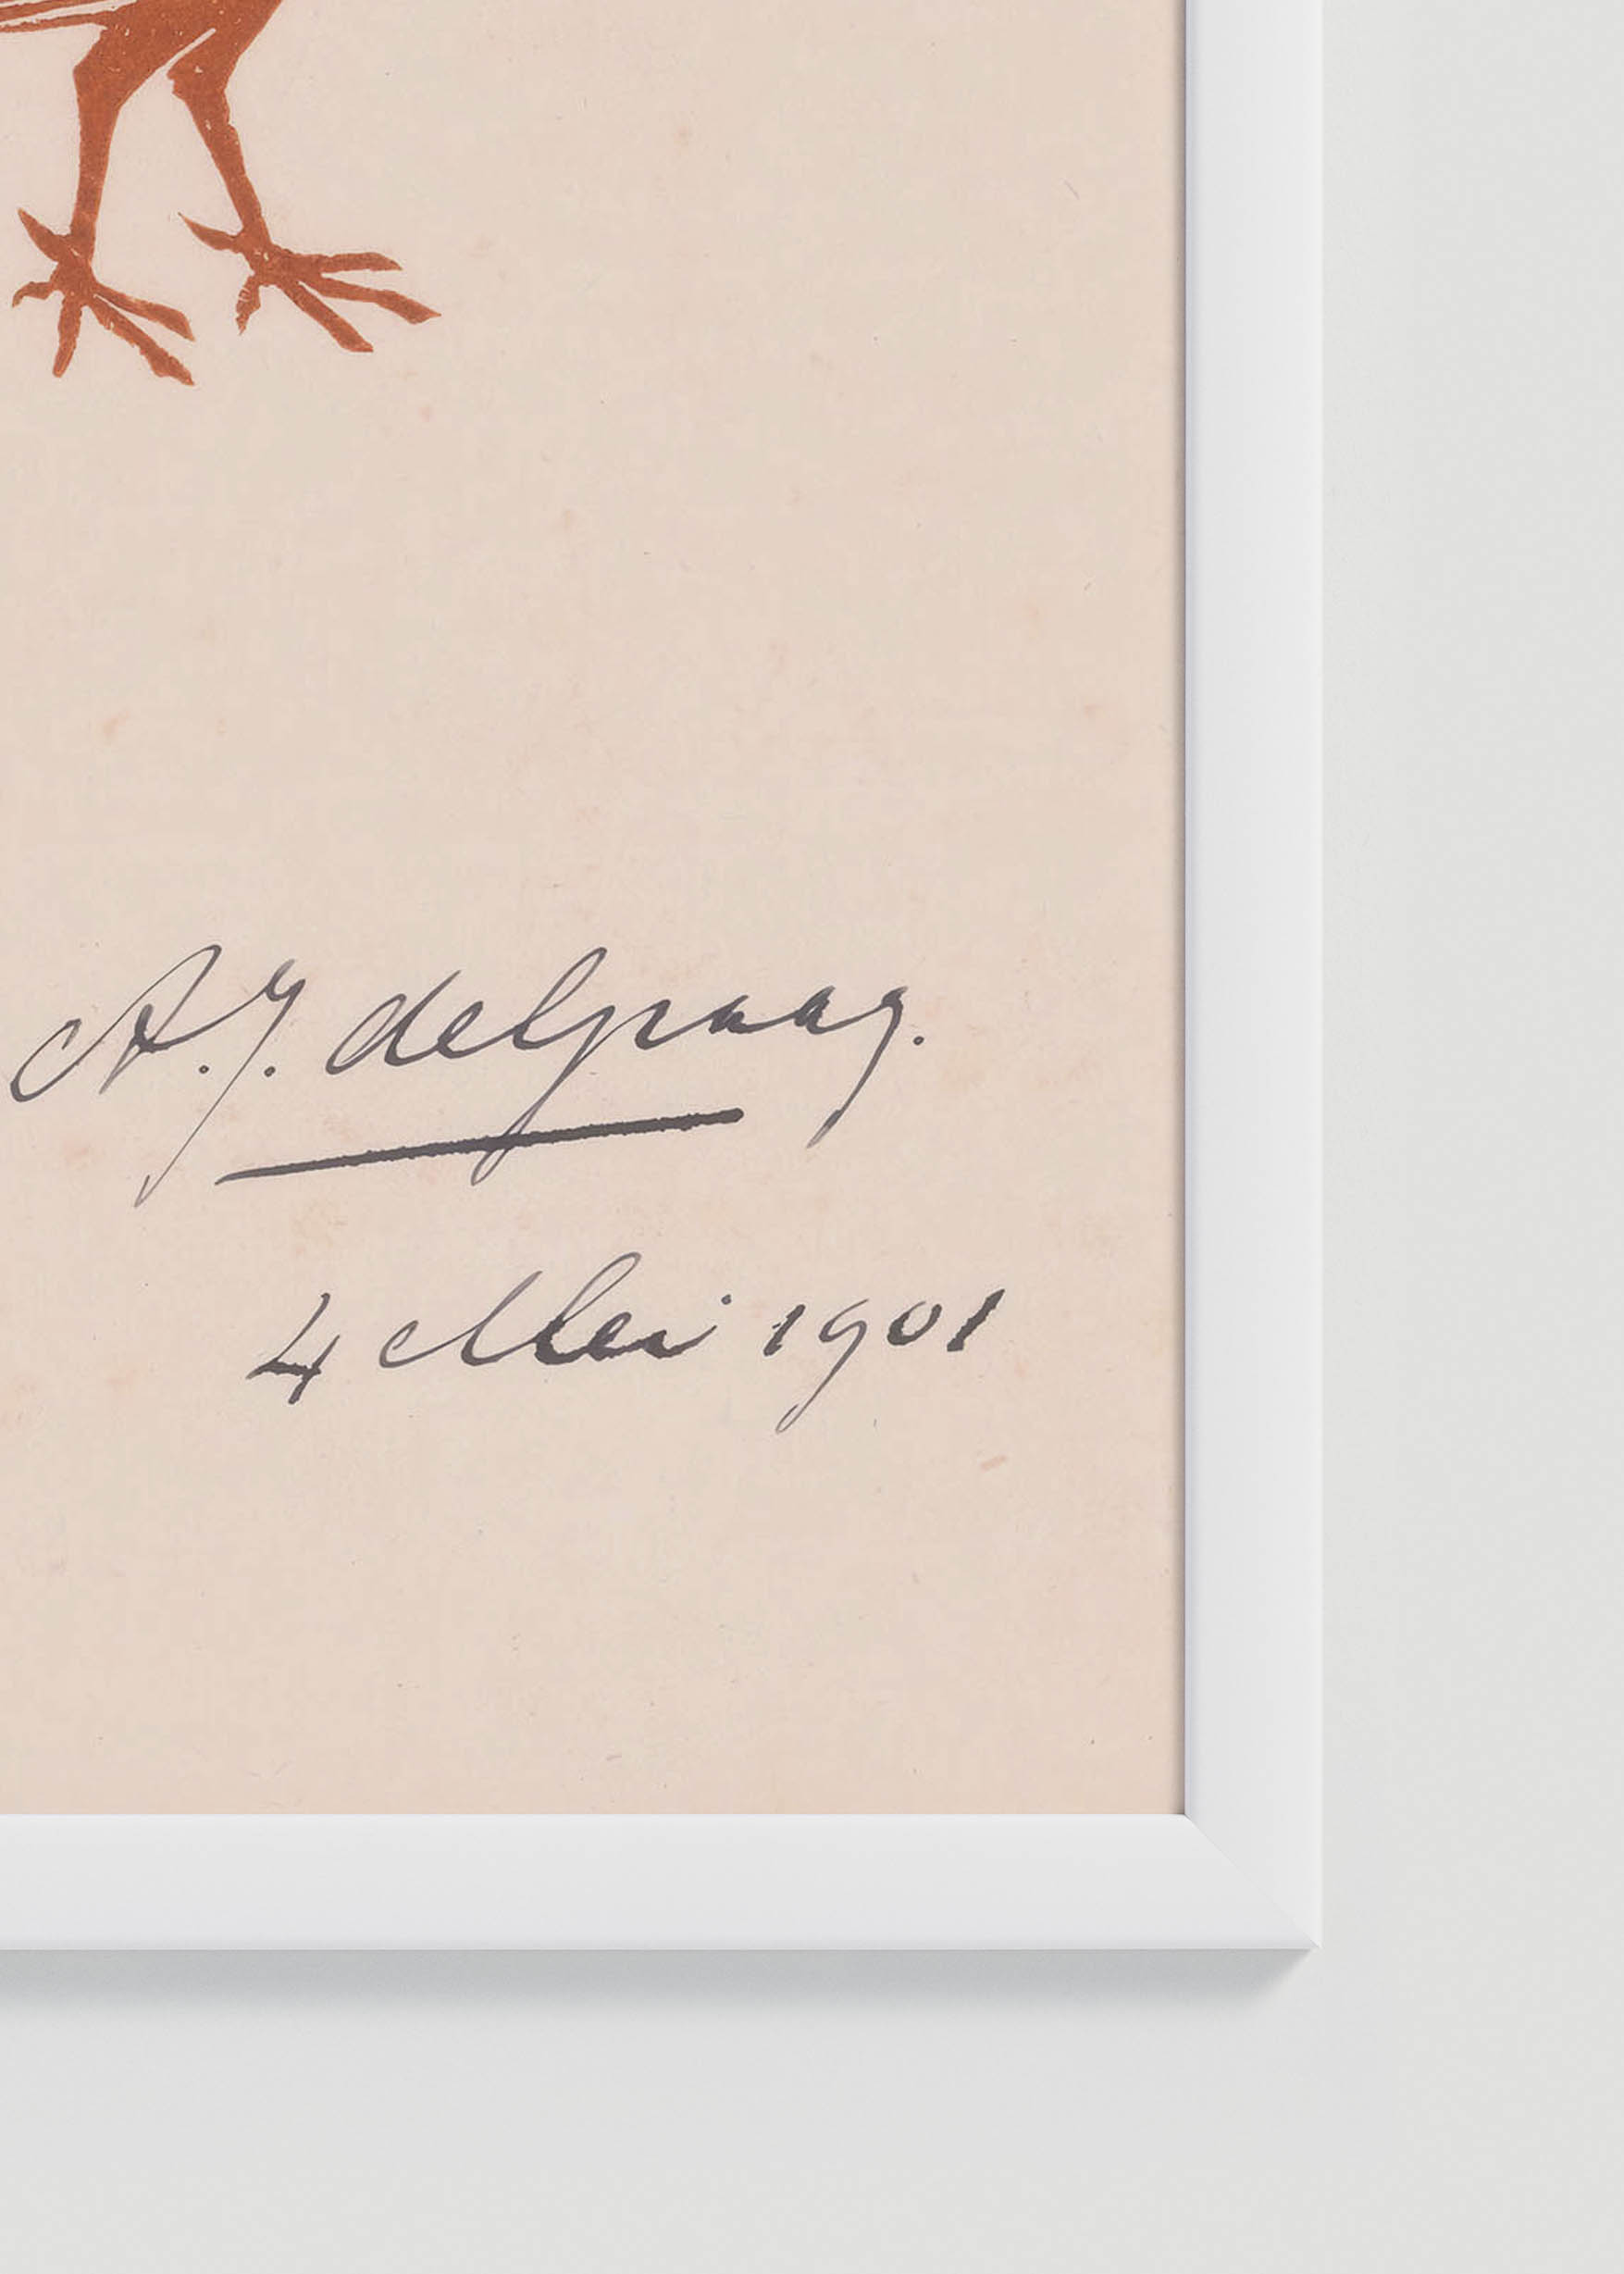 A. J. delpaag.
4 Mei 1901